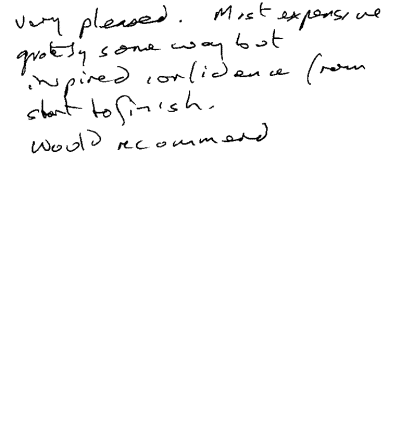 Very pleased. Most expensive
quote by some way but
inspired confidence from
start to finish.
Would recommend